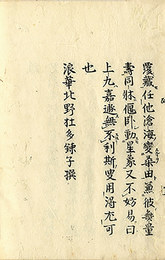 覆蔵任他滄海變桑田兼彼無量
壽同牀偃卧動星象又不妨易曰
上九嘉遯無不利斯叟用濁尤可
也
浪華北野杜多諌子撰